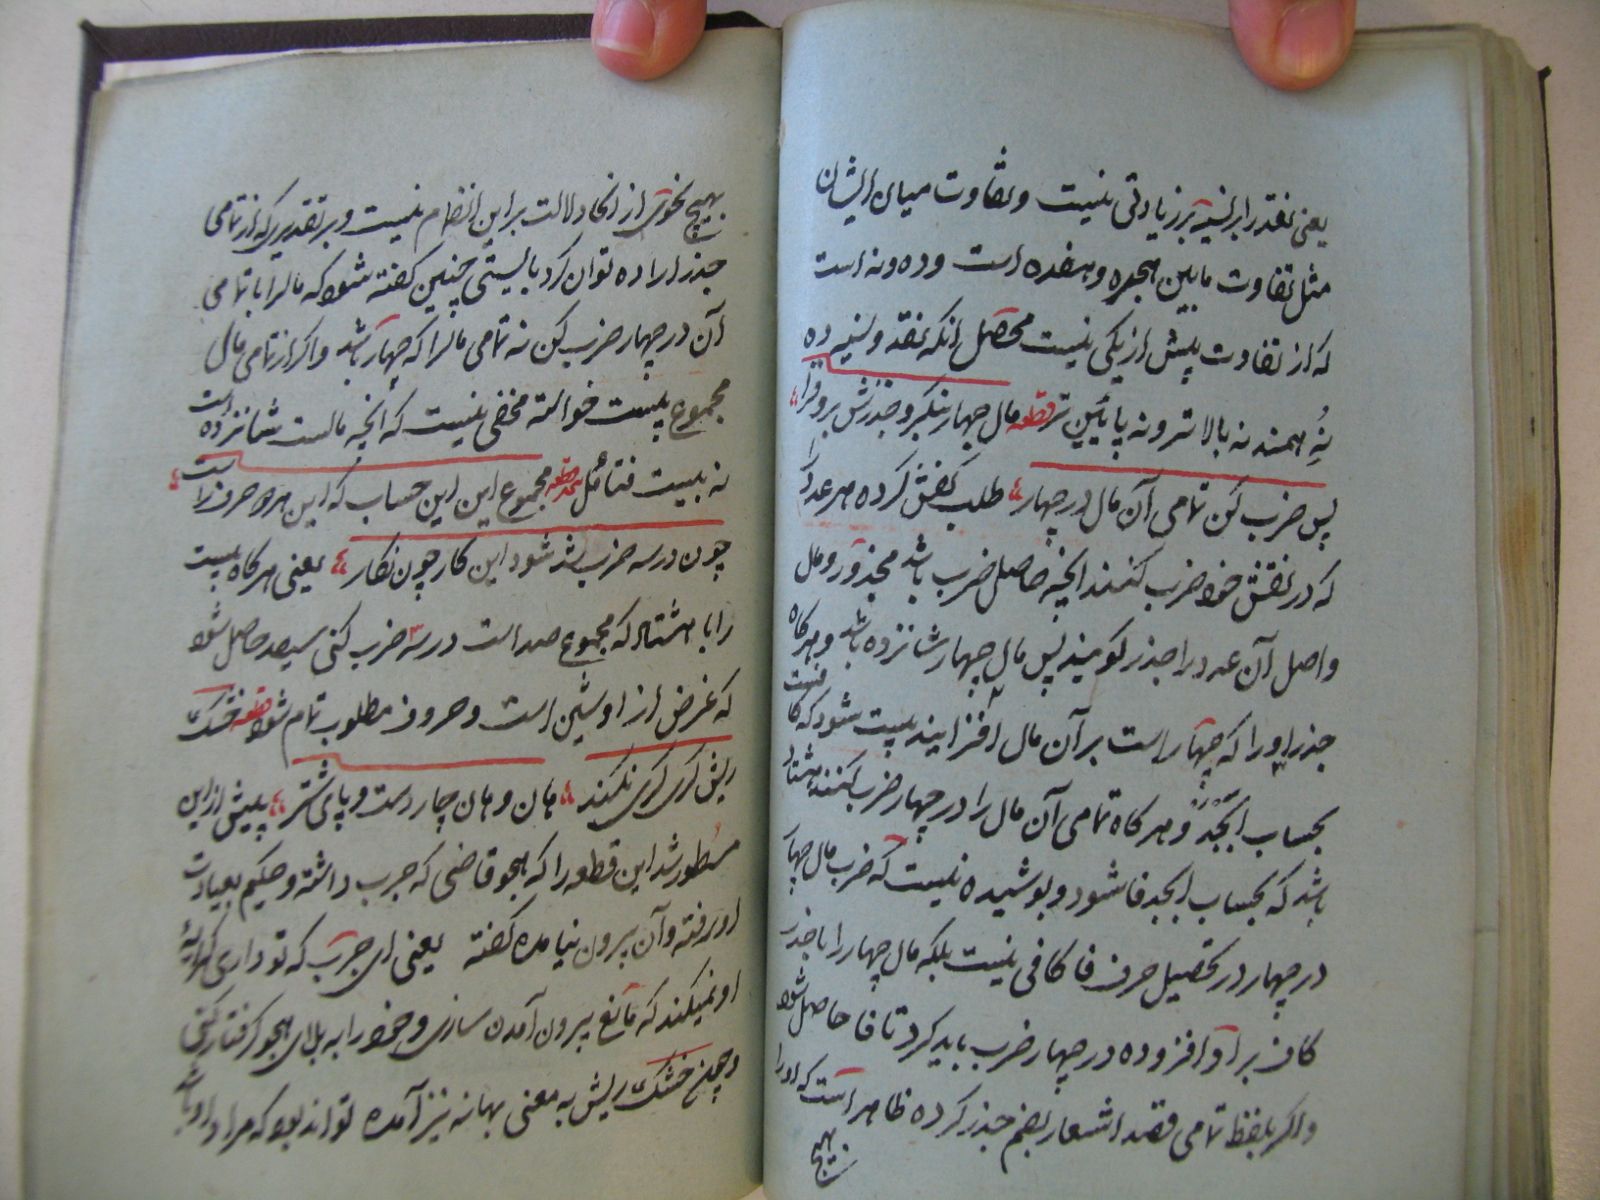 یعنی نقد را بر نسیه بر زیادتی نیست و تفاوت میان ایشان
مثل تفاوت مابین هجده و هفده است و ده و نه است
که از تفاوت بیش از یکی نیست محصل انکه نقد و نسیه ده
نهِ همند نه بالاتر و نه پایین تر قطعه مال چهار بنکر و جذرش برو فزا
پس ضرب کن تمامی آن مال در چهار طلب کفش کرده هر عدد را
که در نفس خود ضرب کنند انچه حاصل ضرب باشد مجذور و مال
و اصل آن عدد را جذر کویند پس مال چهار شانزده باشد و هر کاه
جذر او را که چهار است بر آن مال افزایند بیست شود که کافست
بحساب ابجد و هر کاه تمامی آن مال را در چهار ضرب کنند هشتاد
باشد که بحساب ابجد فا شود و پوشیده نیست که ضرب مال چهار
در چهار در تحصیل حرف فا کافی نیست بلکه مال چهار را با جذر
کان بر او افزوده در چهار ضرب باید کرد تا فا حاصل شود
و اکر بلفظ تمامی قصد اشعار بضم جذر کرده ظاهر است که او را
بهیچ
بهیچ نحوی از انحا دلالت بر این انضمام نیست و بر تقدیری که از تمامی
جذر اراده توان کرد بایستی چنین کفته شود که مال را با تمامی
آن در چهار ضرب کن نه تمامی مال را که چهار باشد و اکر از تمامی مال
مجموع بیست خواسته مخفی نیست که انچه مالست شانزده است
نه بیست فتامّل قطعه مجموع این این حساب که این هر دو حرف راست
چون در سه ضرب شد شود این کار چون نکار یعنی هر کاه بیست
را با هشتاد که مجموع صد است در سه ضرب کنی سیصد حاصل شود
که غرض از او شین است و حروف مطلوب تمام شود قطعه خشک
ریش کری کری نکند هان و هان چار دست و پای شتر پیش از این
مسطور شد این قطعه را که هجو قاضی که جرب داشته و حکیم بعیادت
او رفته و آن بیرون نیامده کفته یعنی ای جرب که تو داری کرایهٔ
او نمیکند که مانع بیرون آمدن سازی و خود را به بلای هجو کرفتار کنی
و چون خشک ریش به معنی بهانه نیز آمده تواند بود که مراد او باشد